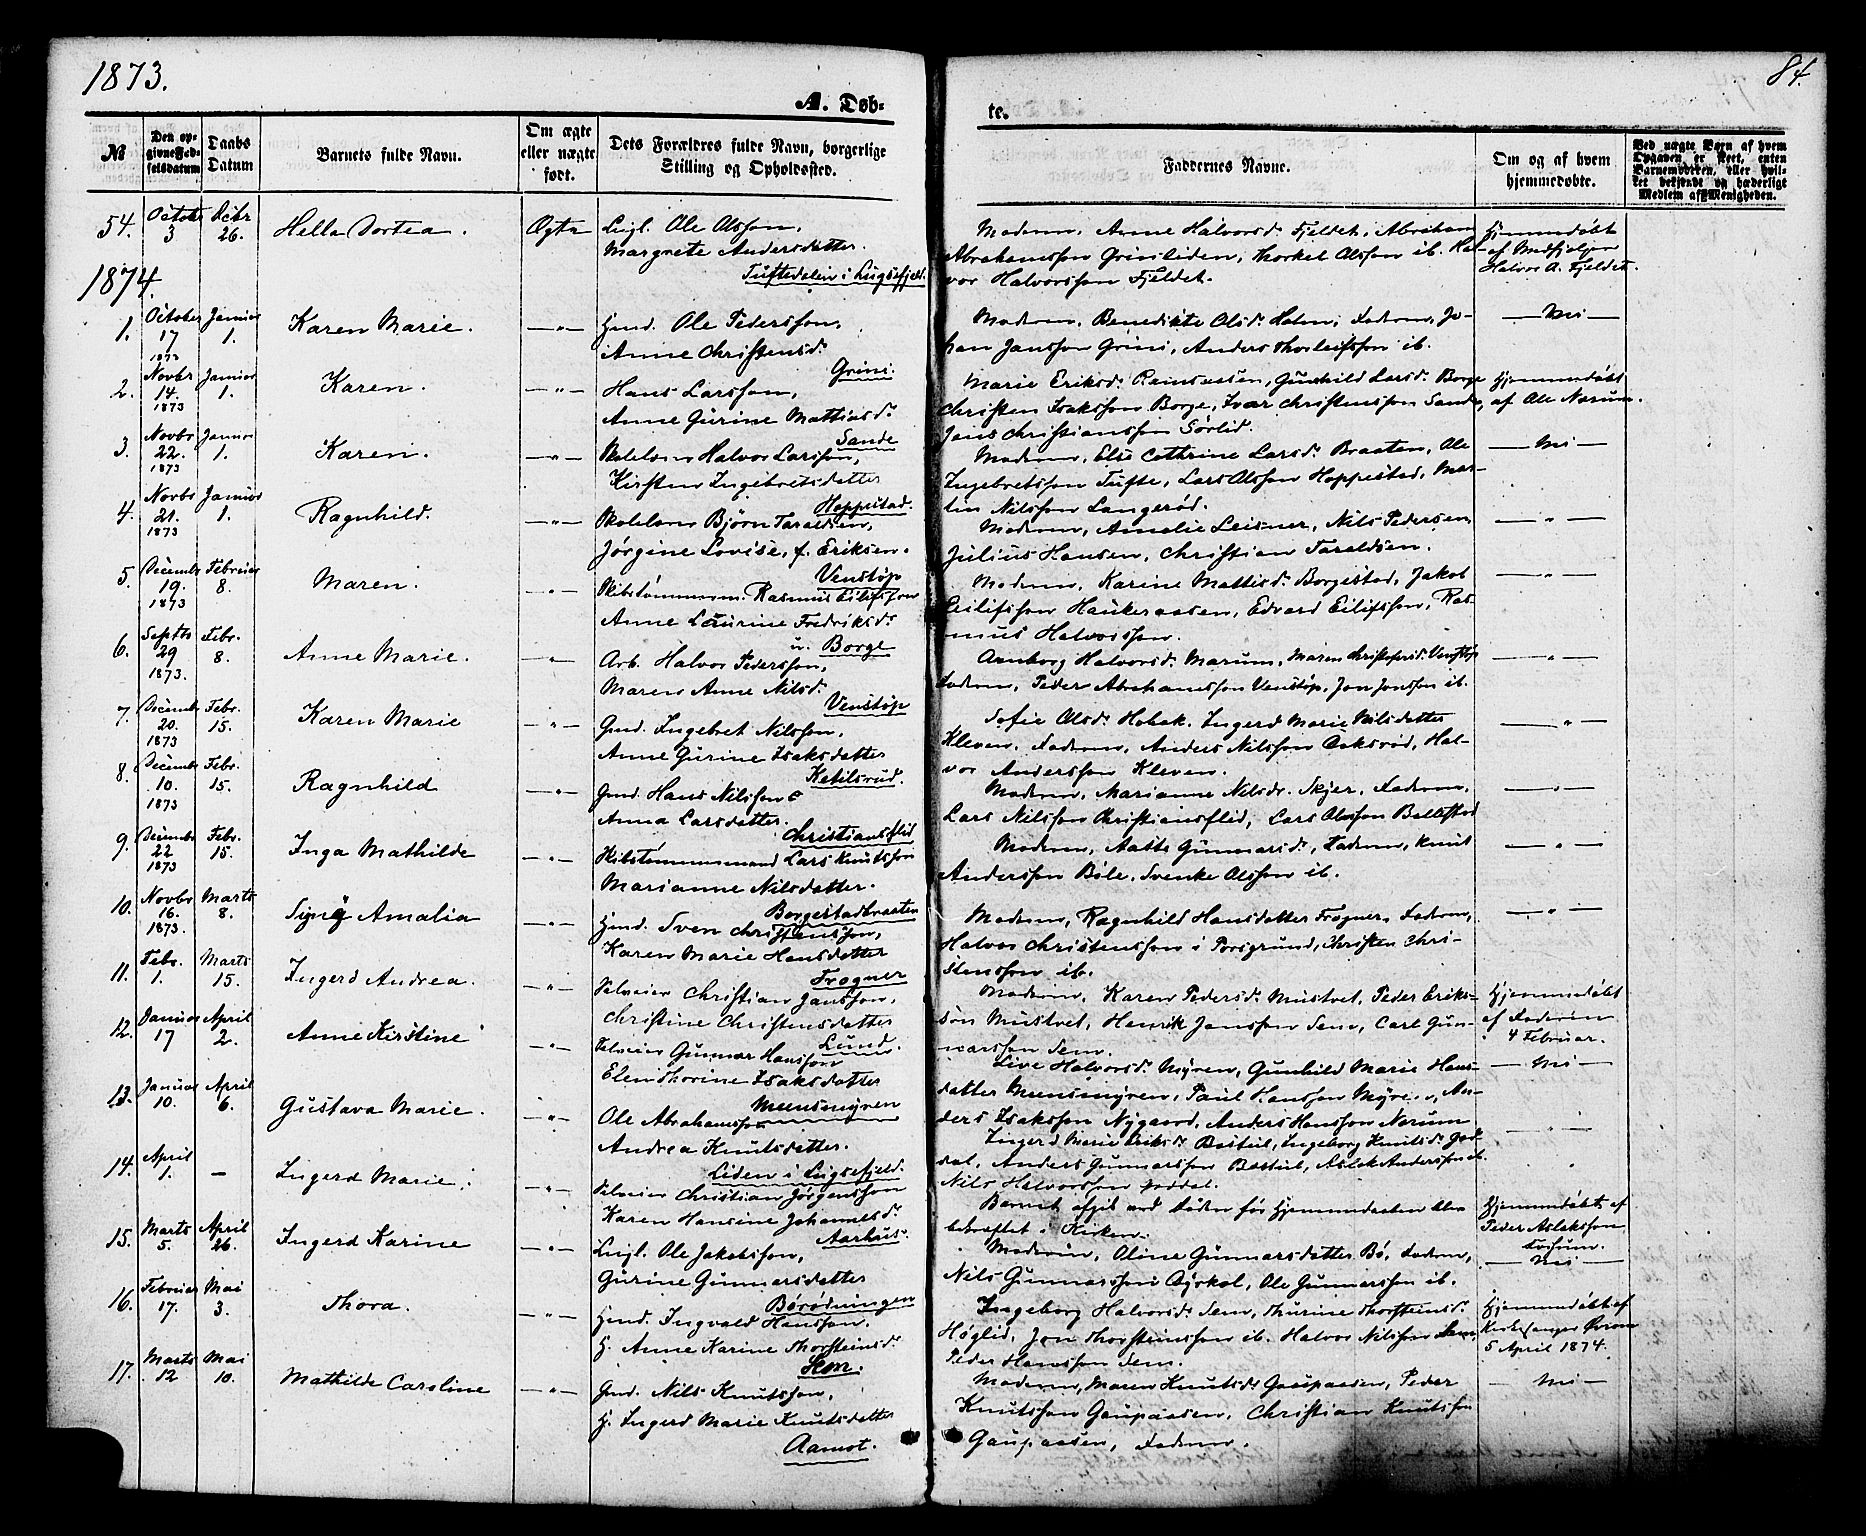 1873.
84.
A. Døb-
te.
№
Den op-
givne Fød-
selsdatum
Daabs
Datum
Barnets fulde Navn.
Om ægte
eller uægte
født.
Dets Forældres fulde Navn, borgerlige
Stilling og Opholdssted.
Faddernes Navne.
Om og af hvem
hjemmedøbt.
Ved uægte Børn af hvem
Opgaven er skeet, enten
Barnemoderen, eller hvil-
ket bekjendt og hæderligt
Medlem af Menigheden.
54. Octobr 3 Dcbr 26. Hella Dortea. Ægte Leigl. Ole Olsson,
Margrete Andersdatter.
Tuftedalen i Lugsefjeld.
Moderen, Anne Halvorsd. Fjeldet, Abraham
Abrahamsson Grinliden, Thorkel Olsson ib. Hal-
vor Halvorsson Fjeldet.
Hjemmedøbt
Halvor A. Fjeldet.
1874.
1. October 17 1873 Januar 1. Karen Marie. —"— Gmd. Ole Pedersson,
Anne Christensd.
Grini.
Moderen, Benedikte Olsd. Holm, Faderen, Jo-
han Jansson Grini, Anders Thorleifsson ib.
— Nei —
2. Novbr 14. 1873 Januar 1. Karen. —"— Hans Larsson,
Anne Gurine Mathiasd.
Sande
Marie Eriksd. Ramsaasen, Gunhild Larsd. Borge
Christen Isaksson Borge, Ivar Christensson Sande,
Jens Christiansson Sørlid.
Hjemmedøbt
af Ole Narum.
3. Novbr 22. 1873 Januar 1. Karen. —"— Skolelærer Halvor Larsson,
Kirsten Ingebretsdatter
Hoppestad.
Moderen, Else Cathrine Larsd. Braaten, Ole
Ingebretsson Tufte, Lars Olsson Hoppestad, Mar-
tin Nilsson Langerød.
— Nei —
4. Novbr 21. 1873 Januar 1. Ragnhild. —"— Skolelærer Bjørn Taraldsen,
Jørgine Lovise, f. Eriksen.
Venstøp
Moderen, Amalie Leisner, Nils Pedersen,
Julius Hansen, Christian Taraldsen.
— " —
5. Decembr 19. 1873 Februar 8. Maren. —"— Skibstømmerm. Rasmus Eilifsson
Anne Laurine Fredriksd.
u. Borge
Moderen, Karine Mattisd. Borgestad, Jakob
Eilifsson Haukeraasen, Edvard Eilifsson, Ras-
mus Halvorsson.
— " —
6. Septbr 29 1873. Febr. 8. Anne Marie. —"— Arb. Halvor Pedersson,
Maren Anne Nilsd.
Venstøp
Aanborg Halvorsd. Marum, Maren Christophersd. Venstøp
Faderen, Peder Abrahamsson Venstøp, Jon Jonsson ib.
— " —
7. Decembr 20. 1873 Febr. 15. Karen Marie —"— Gmd. Ingebret Nilsson,
Anne Gurine Isaksdatter
Ketilsrud.
Sofie Olsd. Hobæk, Ingerd Marie Nilsdatter
Kleven, Faderen, Anders Nilsson Aaksrød, Hal-
vor Andersson Kleven.
— " —
8. Decembr 10. 1873 Febr. 15. Ragnhild —"— Gmd. Hans Nilsson
Anna Larsdatter.
Christianslid
Moderen, Marianne Nilsd. Skjer, Faderen,
Lars Nilsson Christianslid, Lars Olsson Bollestad
— " —
9. Decembr 22 1873 Febr. 15. Inga Mathilde —"— Skibstømmermand Lars Knutsson
Marianne Nilsdatter.
Borgestadbraaten
Moderen, Aaste Gunnarsd., Faderen, Knut
Andersson Bøle, Svenke Olsson ib.
— " —
10. Novbr 16. 1873. Marts 8. Signe Amalia —"— Gmd. Sven Christensson,
Karen Marie Hansdatter
Frogner
Moderen, Ragnhild Hansdatter Frogner, Faderen,
Halvor Christensson i Porsgrund, Christen Chri-
stensson ib.
— " —
11. Febr. 1. Marts 15. Ingerd Andrea. —"— Selveier Christian Jansson,
Christine Christensdatter
Lund.
Moderen, Karen Pedersd. Mustvet, Peder Eriks-
søn Mustvet, Henrik Jansson Sem, Carl Gun-
narsson Sem.
Hjemmedøbt
af Faderen
4 Februar.
12. Januar 17 April 2. Anne Kirstine —"— Selveier Gunnar Hansson
Elen Thorine Isaksdatter
Meensmyren
Live Halvorsd. Myren, Gunhild Marie Hans-
datter Meensmyren, Paul Hansson Myre, An-
ders Isaksson Nygaard, Anders Hansson Narum
— Nei —
13. Januar 10. April 6. Gustava Marie. —"— Ole Abrahamsson
Andrea Knutsdatter.
Liden i Lugsefjeld.
Ingerd Marie Eriksd. Bøstul, Ingeborg Knutsd. God-
dal, Anders Gunnarsson Bøstul, Aslak Andersson ib.
Nils Halvorsson Goddal.
— " —
14. April 1. — Ingerd Marie. —"— Selveier Christian Jørgensson
Karen Hansine Johannesd.
Aarhus.
Barnet afgik ved Døden før Hjemmedaaben blev
bekræftet i Kirken.
Hjemmedøbt af
Peder Aslaksson
Fossum.
15. Marts 5. April 26. Ingerd Karine —"— Leigl. Ole Jakobsson,
Gurine Gunnarsdatter
Børødningen
Moderen, Oline Gunnarsdatter Bø, Faderen,
Nils Gunnarsson Ørkol, Ole Gunnarsson ib.
— Nei —
16. Februar 17. Mai 3. Thora. —"— Gmd. Ingvald Hansson,
H. Anne Karine Thorsteinsd.
Sem.
Ingeborg Halvorsd. Sem, Thurine Thorsteinsd.
Høglid, Jon Thorsteinsson ib. Halvor Nilsson Sem,
Peder Hansson Sem.
Hjemmedøbt af
Kirkesanger Ørum
5 April 1874.
17. Marts 12 Mai 10. Mathilde Caroline —"— Gmd. Nils Knutsson,
H. Ingerd Marie Knutsdatter
Aamot.
Moderen, Maren Knutsd. Gaupaasen, Peder
Knutsson Gaupaasen, Christian Knutsson
Gaupaasen, Faderen.
— Nei —